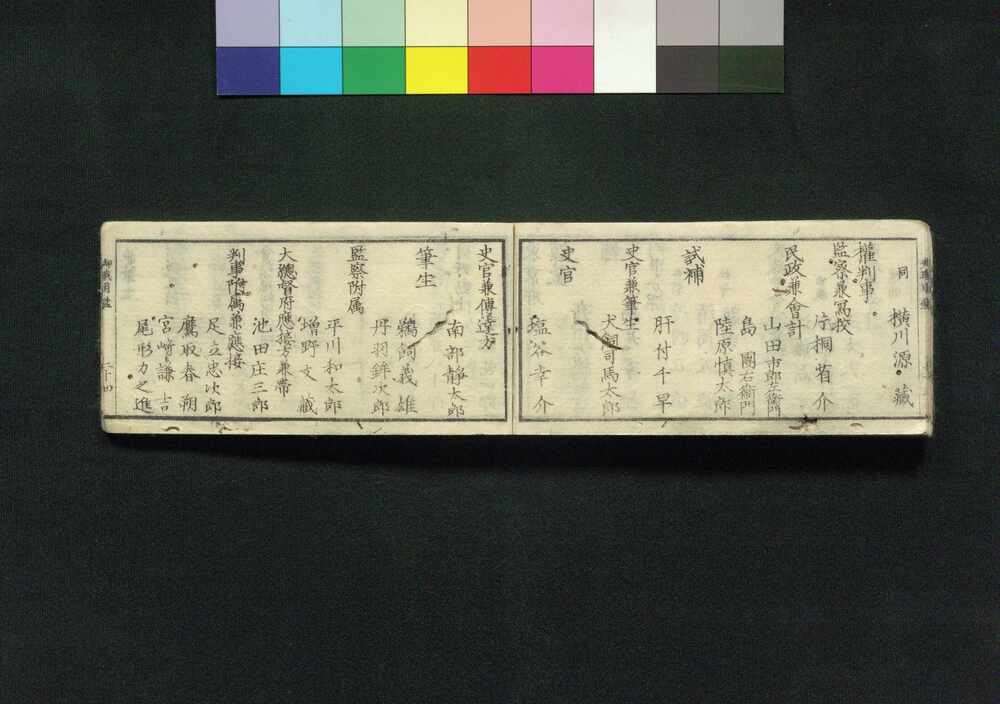 同 横川源藏
權判事
監察兼爲校
片桐省介
民政兼會計
山田市郎左衛門
島團右衛門
陸原慎太郎
試補
肝付千早
史官兼筆生
犬飼司馬太郎
史官
塩谷幸介
史官兼傳達方
南部静太郎
筆生
鵜飼義雄
丹羽鉡次郎
監察附属
平川和太郎
増野文藏
大總督府應接方兼帯
池田庄三郎
判事附属兼應接
足立忠次郎
鷹取春朔
宮﨑謙吉
尾形力之進